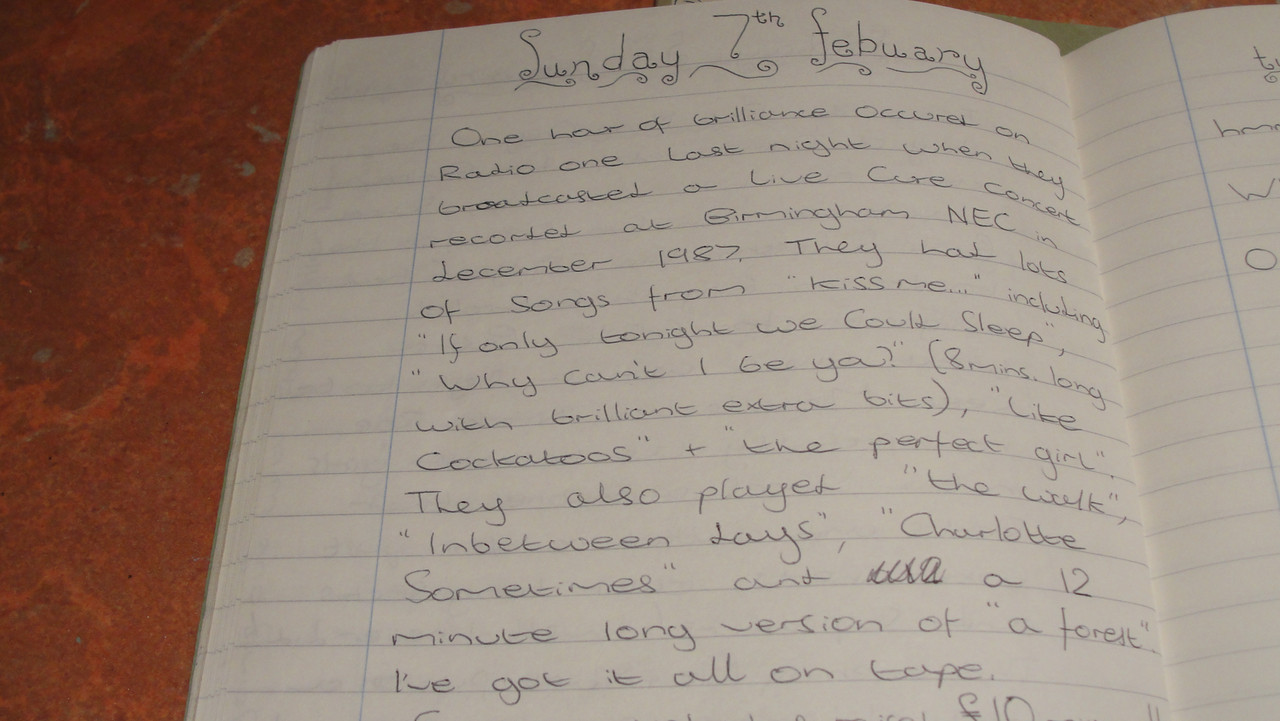 Sunday 7th febuary
One hour of brilliance occured on
Radio one last night when they
broadcasted a live Cure concert
recorded at Birmingham NEC in
december 1987. They had lots
of songs from "kiss me..." including
"If only tonight we could sleep",
"Why can't I be you?" (8mins. long
with brilliant extra bits), "like
cockatoos" + "the perfect girl".
They also played "the walk",
"Inbetween days", "Charlotte
Sometimes" and a 12
minute long version of "a forest".
I've got it all on tape.
£10